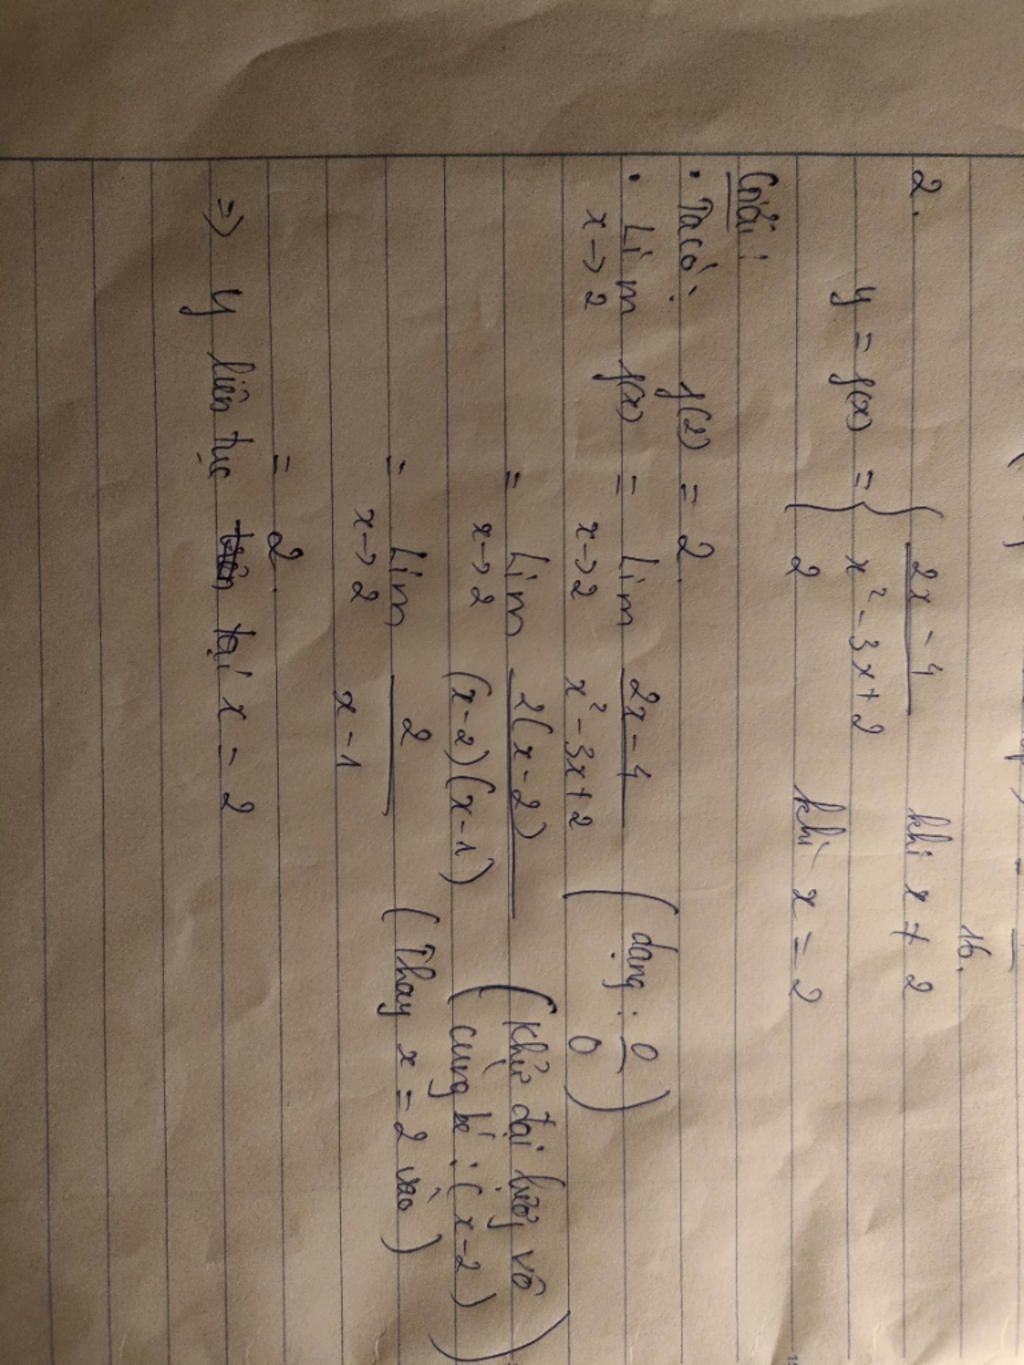 16.
2.
y = f(x) = { 2x - 4 / x² - 3x + 2 khi x ≠ 2
2 khi x = 2
Giải:
• Ta có: f(2) = 2.
• Lim x→2 f(x) = Lim x→2 2x - 4 / x² - 3x + 2 (dạng: 0/0)
= Lim x→2 2(x-2) / (x-2)(x-1) (Khử đại lượng vô
cùng bé: (x-2))
= Lim x→2 2 / x - 1 (Thay x = 2 vào)
= 2.
=> y liên tục tại x = 2